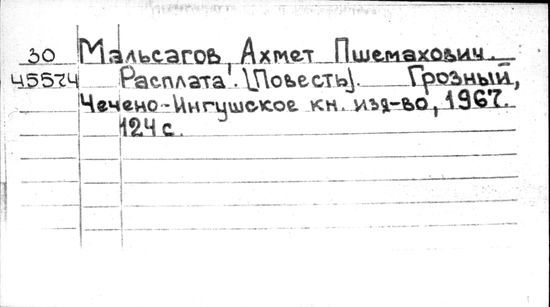 30 Мальсагов, Ахмет Пшемахович.
45574 Расплата. [Повесть]. Грозный,
Чечено-Ингушское кн. изд-во, 1967.
124 с.